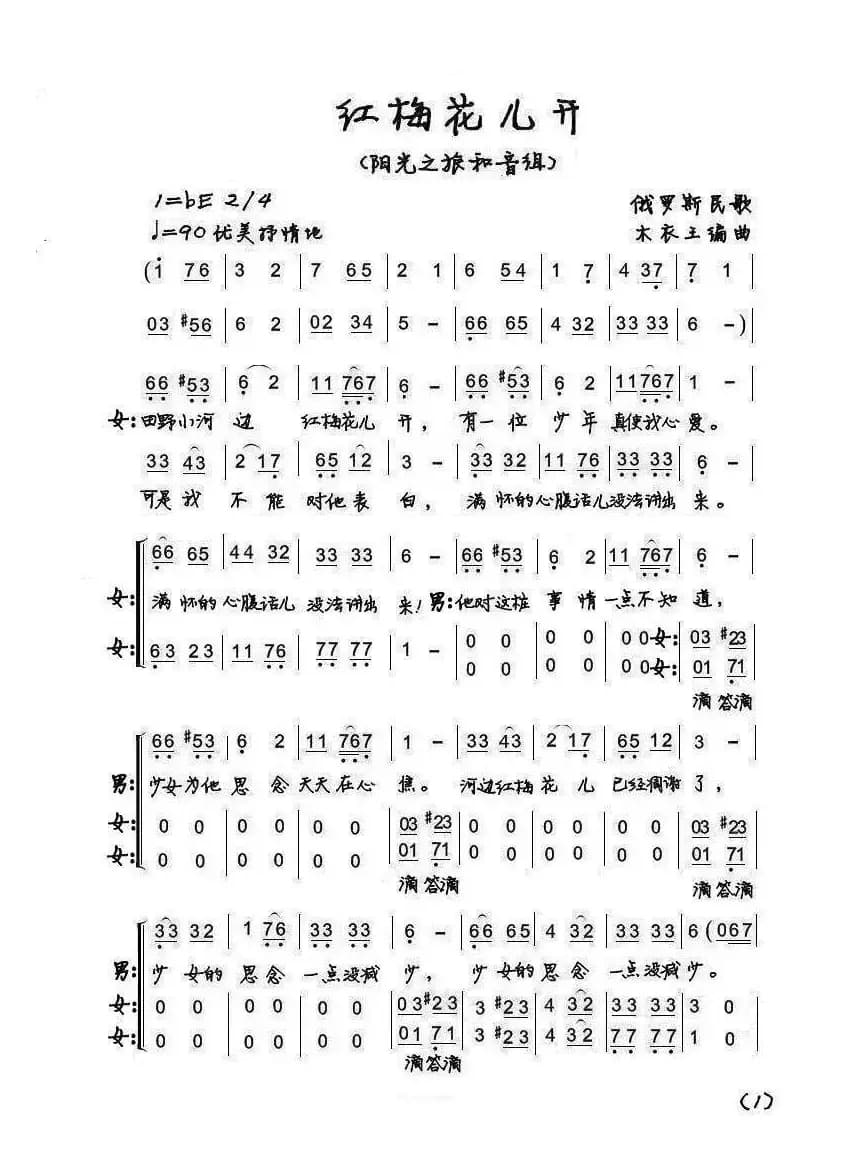 红梅花儿开
(阳光之旅和音组)
1=bE 2/4 俄罗斯民歌
♩=90 优美抒情地 木衣王编曲
(1 76 | 3 2 | 7 65 | 2 1 | 6 54 | 1 7 | 4 37 | 7 1
03 #56 | 6 2 | 02 34 | 5 – | 66 65 | 4 32 | 33 33 | 6 –)
66 #53 | 6 2 | 11 767 | 6 – | 66 #53 | 6 2 | 11 767 | 1 –
女: 田野小河 边 红梅花儿 开, 有一位 少年 真使我心爱。
33 43 | 2 17 | 65 12 | 3 – | 33 32 | 11 76 | 33 33 | 6 –
可是我 不能 对他表 白, 满怀的心腹话儿没法讲出来。
66 65 | 44 32 | 33 33 | 6 – | 66 #53 | 6 2 | 11 767 | 6 –
女: 满怀的心腹话儿 没法讲出 来! 男: 他对这桩 事情一点不知道,
女: 63 23 | 11 76 | 77 77 | 1 – | 0 0 | 0 0 | 0 0 女: | 03 #23
0 0 | 0 0 | 0 0 女: | 01 71
滴答滴
66 #53 | 6 2 | 11 767 | 1 – | 33 43 | 2 17 | 65 12 | 3 –
男: 少女为他 思念天天在心焦。 河边红梅花儿 已经凋谢了,
女: 0 0 | 0 0 | 0 0 | 03 #23 | 0 0 | 0 0 | 0 0 | 03 #23
女: 0 0 | 0 0 | 0 0 | 01 71 | 0 0 | 0 0 | 0 0 | 01 71
滴答滴 滴答滴
33 32 | 1 76 | 33 33 | 6 – | 66 65 | 4 32 | 33 33 | 6 (067
男: 少女的思念 一点没减少, 少女的思念 一点没减少。
女: 0 0 | 0 0 | 0 0 | 03 #23 | 3 #23 | 4 32 | 33 33 | 3 0
女: 0 0 | 0 0 | 0 0 | 01 71 | 3 #23 | 4 32 | 77 77 | 1 0
滴答滴
(1)